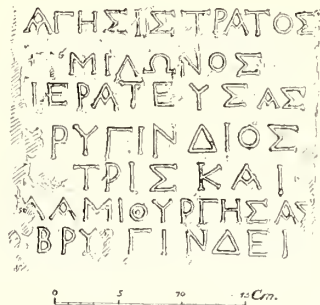 ΑΓΗΣΙΣΤΡΑΤΟΣ
ΜΙΔΩΝΟΣ
ΙΕΡΑΤΕΥΣΑΣ
ΡΥΓΙΝΔΙΟΣ
ΤΡΙΣ ΚΑΙ
ΔΑΜΙΟΥΡΓΗΣΑΣ
ΒΡΥΓΙΝΔΕΙ
0 5 10 15 Cm.